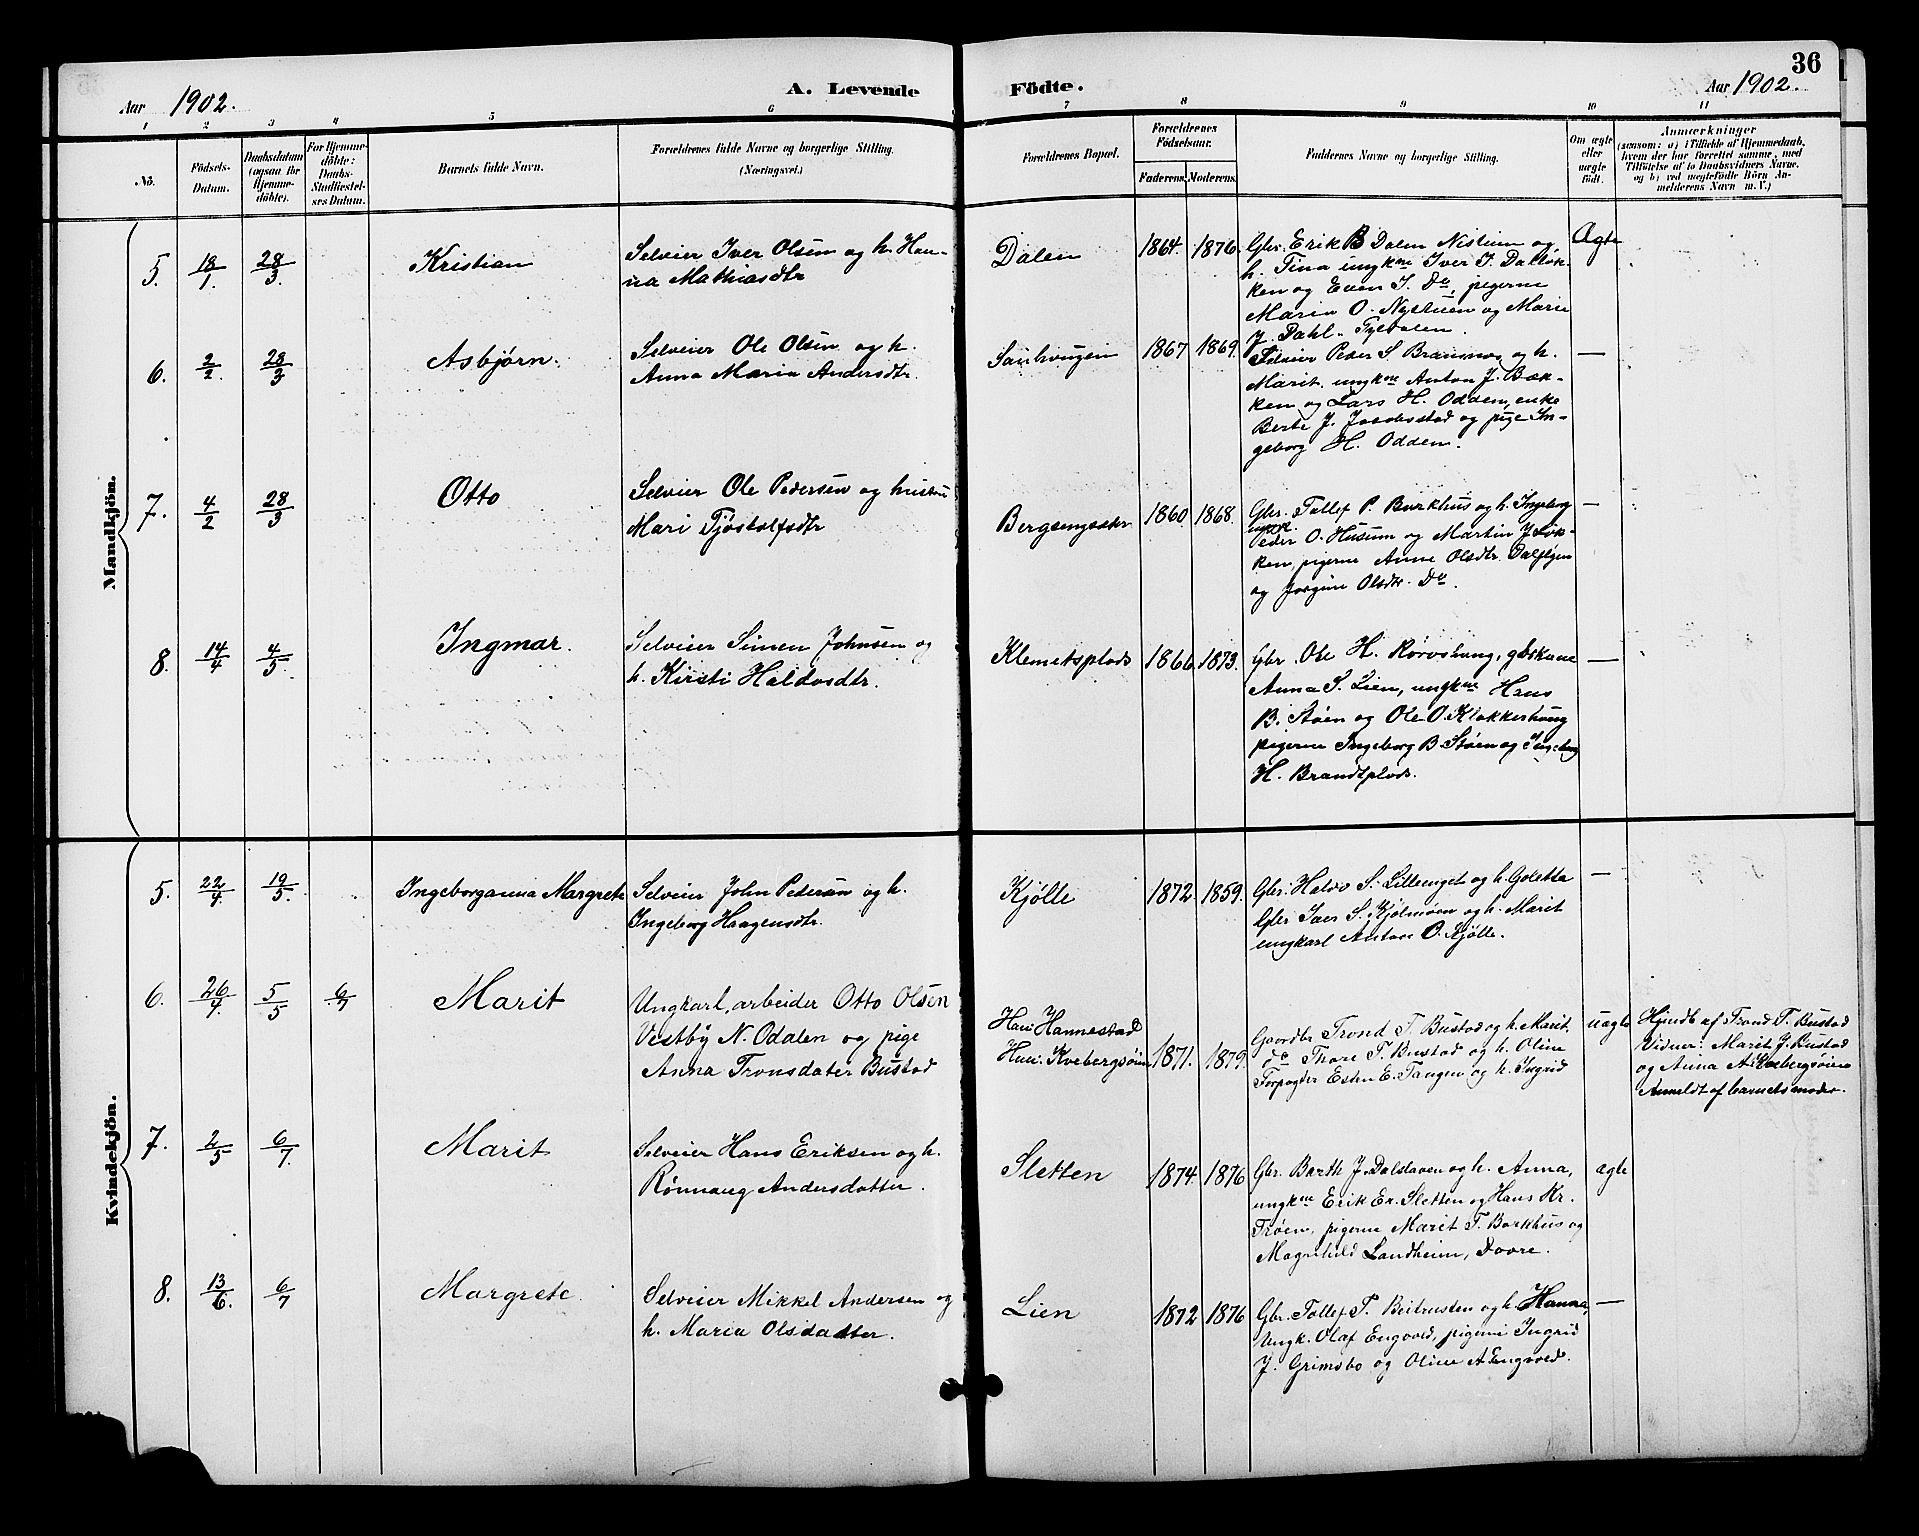 36
Aar 1902.
A. Levende
Födte.
Aar 1902.
1 2 3 4 5 6 7 8 9 10 11
No.
Födsels-
Datum.
Daabsdatum
(ogsaa for
Hjemme-
döbte).
For Hjemme-
döbte:
Daabs-
Stadfæstel-
ses Datum.
Barnets fulde Navn.
Forældrenes fulde Navne og borgerlige Stilling.
(Næringsvei.)
Forældrenes Bopæl.
Forældrenes
Födselsaar.
Faderens. Moderens.
Faddernes Navne og borgerlige Stilling.
Om ægte
eller
uægte
födt.
Anmærkninger
(saasom: a) i Tilfælde af Hjemmedaab,
hvem der har forrettet samme, med
Tilföielse af to Daabsvidners Navne,
og b) ved uægtefödte Börn An-
melderens Navn m. V.)
Mandkjön.
5. 18/1. 28/3. Kristian
Selveier Iver Olsen og h. Han-
na Mathiasdtr
Dalen
1864. 1876.
Gbr. Erik B Dalen Nistuen og
h. Tina ungkne Iver J. Dalløk-
ken og Even J. Do, pigerne
Maria O. Nystuen og Marie
J. Dahl. Tyldalen.
Ægte
6. 2/2 28/3 Asbjørn.
Selveier Ole Olsen og h.
Anna Maria Andersdtr.
Sauhougen
1867 1869.
Selveier Peder S. og h.
Marit. ungkne Anton J. Bak-
ken og Lars H. Odden, enke
Berte J. Jacobsstad og pige In-
geborg H. Odden.
—
7. 4/2 28/3 Otto
Selveier Ole Pedersen og hustru
Mari Tjøstolfsdtr
1860. 1868.
Gbr. Tollef P. Barkhus og h. Ingeborg
Peder O. Husum og Martin J. Løk-
ken, pigerne Anne Olsdtr.
og Jørgine Olsdtr. Do.
—
8. 14/4 4/5. Ingmar.
Selveier Simen Johnsen og
h. Kirsti Haldosdtr.
Klemetsplads
1866. 1873.
Gbr. Ole H. Røroshoug, gbskone
Anna S. Lien, ungkne Hans
B. Støen og Ole O. Klokkerhoug
pigerne Ingeborg B. Støen og Ingeborg
H. Brandtplads.
—
Kvindekjön.
5. 22/4. 19/5. Ingeborganna Margrete
Selveier John Pedersen og h.
Ingeborg Haagensdtr.
Kjølle
1872. 1859.
Gbr. Haldo S. Lilleenget og h. Goletta
Gbr S. Kjølmoen og h. Marit
ungkarl Anton O. Kjølle.
—
6. 26/4. 5/5 6/7 Marit
Ungkarl, arbeider Otto Olsen
Vestby N. Odalen og pige
Anna Tronsdater Bustad
Han: Hannestad
Hun: Kvebergsøien
1871. 1879.
Gaardbr Trond T. Bustad og h. Marit.
do Thore T. Bustad og h. Oline
Forpagter Esten E. Tangen og h. Ingrid
uægte
Hjmdb af Trond T. Bustad
Vidner: Marit J. Bustad
og Anna A. Kvebergsøien
Anmeldt af barnets moder.
7. 2/5 6/7. Marit
Selveier Hans Eriksen og h.
Rønnaug Andersdatter.
Sletten
1874. 1876
Gbr. Barth J. Dalsløven og h. Anna,
ungkne Erik Er. Sletten og Hans Kr.
Trøen, pigerne Marit T. Barkhus og
Magnhild Landheim, Dovre.
ægte
8. 13/6. 6/7 Margrete.
Selveier Mikkel Andersen og
h. Maria Olsdatter.
Lien
1872 1876
Gbr. Tollef T. Beitrusten og h. Hanna,
Ungk. Olaf Engvold, pigerne Ingrid
J. Grimsbo og Oline A Engvold.
—